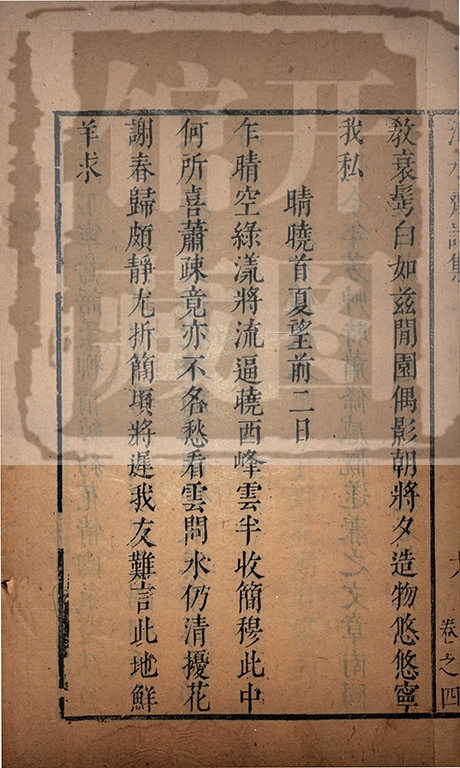 敎衰髩白如兹閒園偶影朝將夕造物悠悠寧
我私
晴曉首夏望前二日
乍晴空綠漾將流逼曉西峰雲半收簡穆此中
何所喜蕭疎竟亦不名愁看雲問水仍清擾花
謝春歸頗靜尤折簡頃將遲我友難言此地鮮
羊求
卷之四